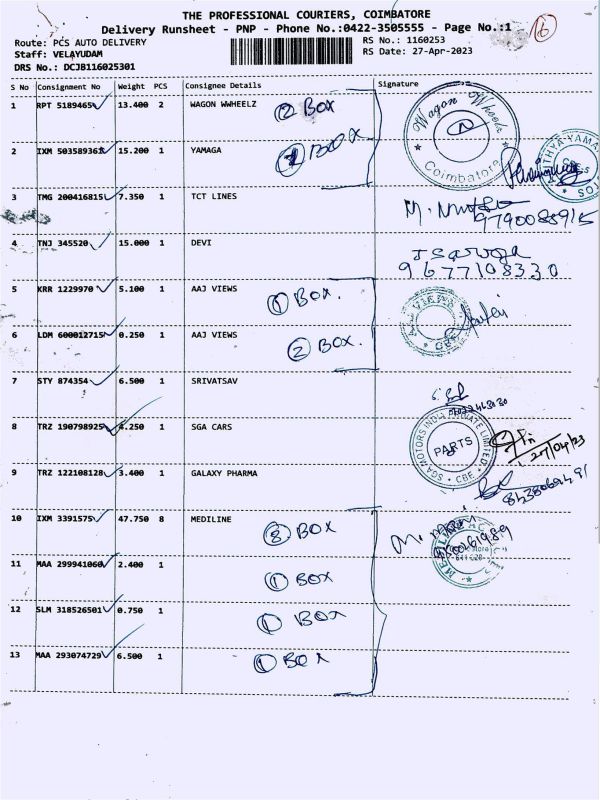 THE PROFESSIONAL COURIERS, COIMBATORE
Delivery Runsheet - PNP - Phone No.:0422-3505555 - Page No.:1
16
Route: PCS AUTO DELIVERY
RS No.: 1160253
Staff: VELAYUDAM
RS Date: 27-Apr-2023
DRS No.: DCJB116025301
S No Consignment No Weight PCS Consignee Details Signature
1 RPT 5189465 13.400 2 WAGON WWHEELZ 2 BOX
Wagon Wheelz Coimbatore
2 IXM 503589363 15.200 1 YAMAGA 1 BOX
3 TMG 200416815 7.350 1 TCT LINES
9790088915
4 TNJ 345520 15.000 1 DEVI
9677108330
5 KRR 1229970 5.100 1 AAJ VIEWS 1 BOX.
6 LDM 600012715 0.250 1 AAJ VIEWS 2 BOX.
7 STY 874354 6.500 1 SRIVATSAV
8 TRZ 190798925 4.250 1 SGA CARS
SGA MOTORS INDIA PRIVATE LIMITED PARTS CBE
27/04/23
9 TRZ 122108128 3.400 1 GALAXY PHARMA
10 IXM 3391575 47.750 8 MEDILINE 8 BOX
11 MAA 299941060 2.400 1 1 BOX
12 SLM 318526501 0.750 1 1 BOX
13 MAA 293074729 6.500 1 1 BOX